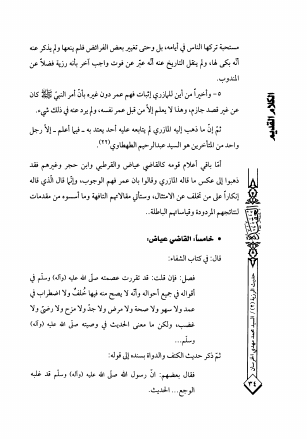 مستحبة تركها الناس في أيامه، بل وحتى تغيير بعض الفرائض فلم ينعها ولم يذكر عنه
أنّه بكى لها، ولم ينقل التاريخ عنه أنّه عبّر عن فوت واجب آخر بأنه رزية فضلاً عن
المندوب.
٥ - وأخيراً من أين للمازري إثبات فهم عمر دون غيره بأنّ أمر النبيّ ﷺ كان
عن غير قصد جازم، وهذا لا يعلم إلّا من قبل عمر نفسه، ولم يرد عنه في ذلك شيء.
ثمّ إنّ ما ذهب إليه المازري لم يتابعه عليه أحد يعتد به ـ فيما أعلم ـ إلّا رجل
واحد من المتأخرين هو السيد عبدالرحيم الطهطاوي (٢٢)
أمّا باقي أعلام قومه كالقاضي عياض والقرطبي وابن حجر وغيرهم فقد
ذهبوا إلى عكس ما قاله المازري وقالوا بأن عمر فهم الوجوب، وإنّما قال الّذي قاله
إنكاراً على من تخلف عن الامتثال، وستأتي مقالاتهم التافهة وما أسسوه من مقدمات
لنتائجهم المردودة وقياساتهم الباطلة..
• خامساً: القاضي عياض:
قال: في كتاب الشفاء:
فصل: فإن قلت: قد تقررت عصمته صلّى الله عليه (وآله) وسلّم في
أقواله في جميع أحواله وأنّه لا يصح منه فيها خُلفٌ ولا اضطراب في
عمد ولا سهو ولا صحة ولا مرض ولا جدّ ولا مزح ولا رضىً ولا
غضب، ولكن ما معنى الحديث في وصيته صلّى الله عليه (وآله)
وسلّم...
ثمّ ذكر حديث الكتف والدواة بسنده إلى قوله:
فقال بعضهم: انّ رسول الله صلّى الله عليه (وآله) وسلّم قد غلبه
الوجع... الحديث.
الكلام القديم
حديث الرزية (٢) / السيد محمد مهدي الخرسان
٣٤